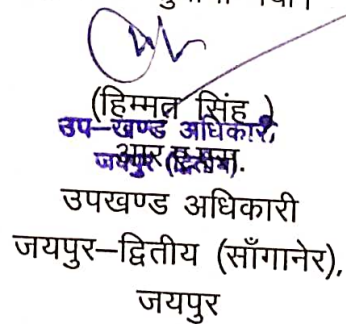 (हिम्मत सिंह)
उप-खण्ड अधिकारी,
आर.ए.एस.
जयपुर (द्वितीय)
उपखण्ड अधिकारी
जयपुर–द्वितीय (साँगानेर),
जयपुर